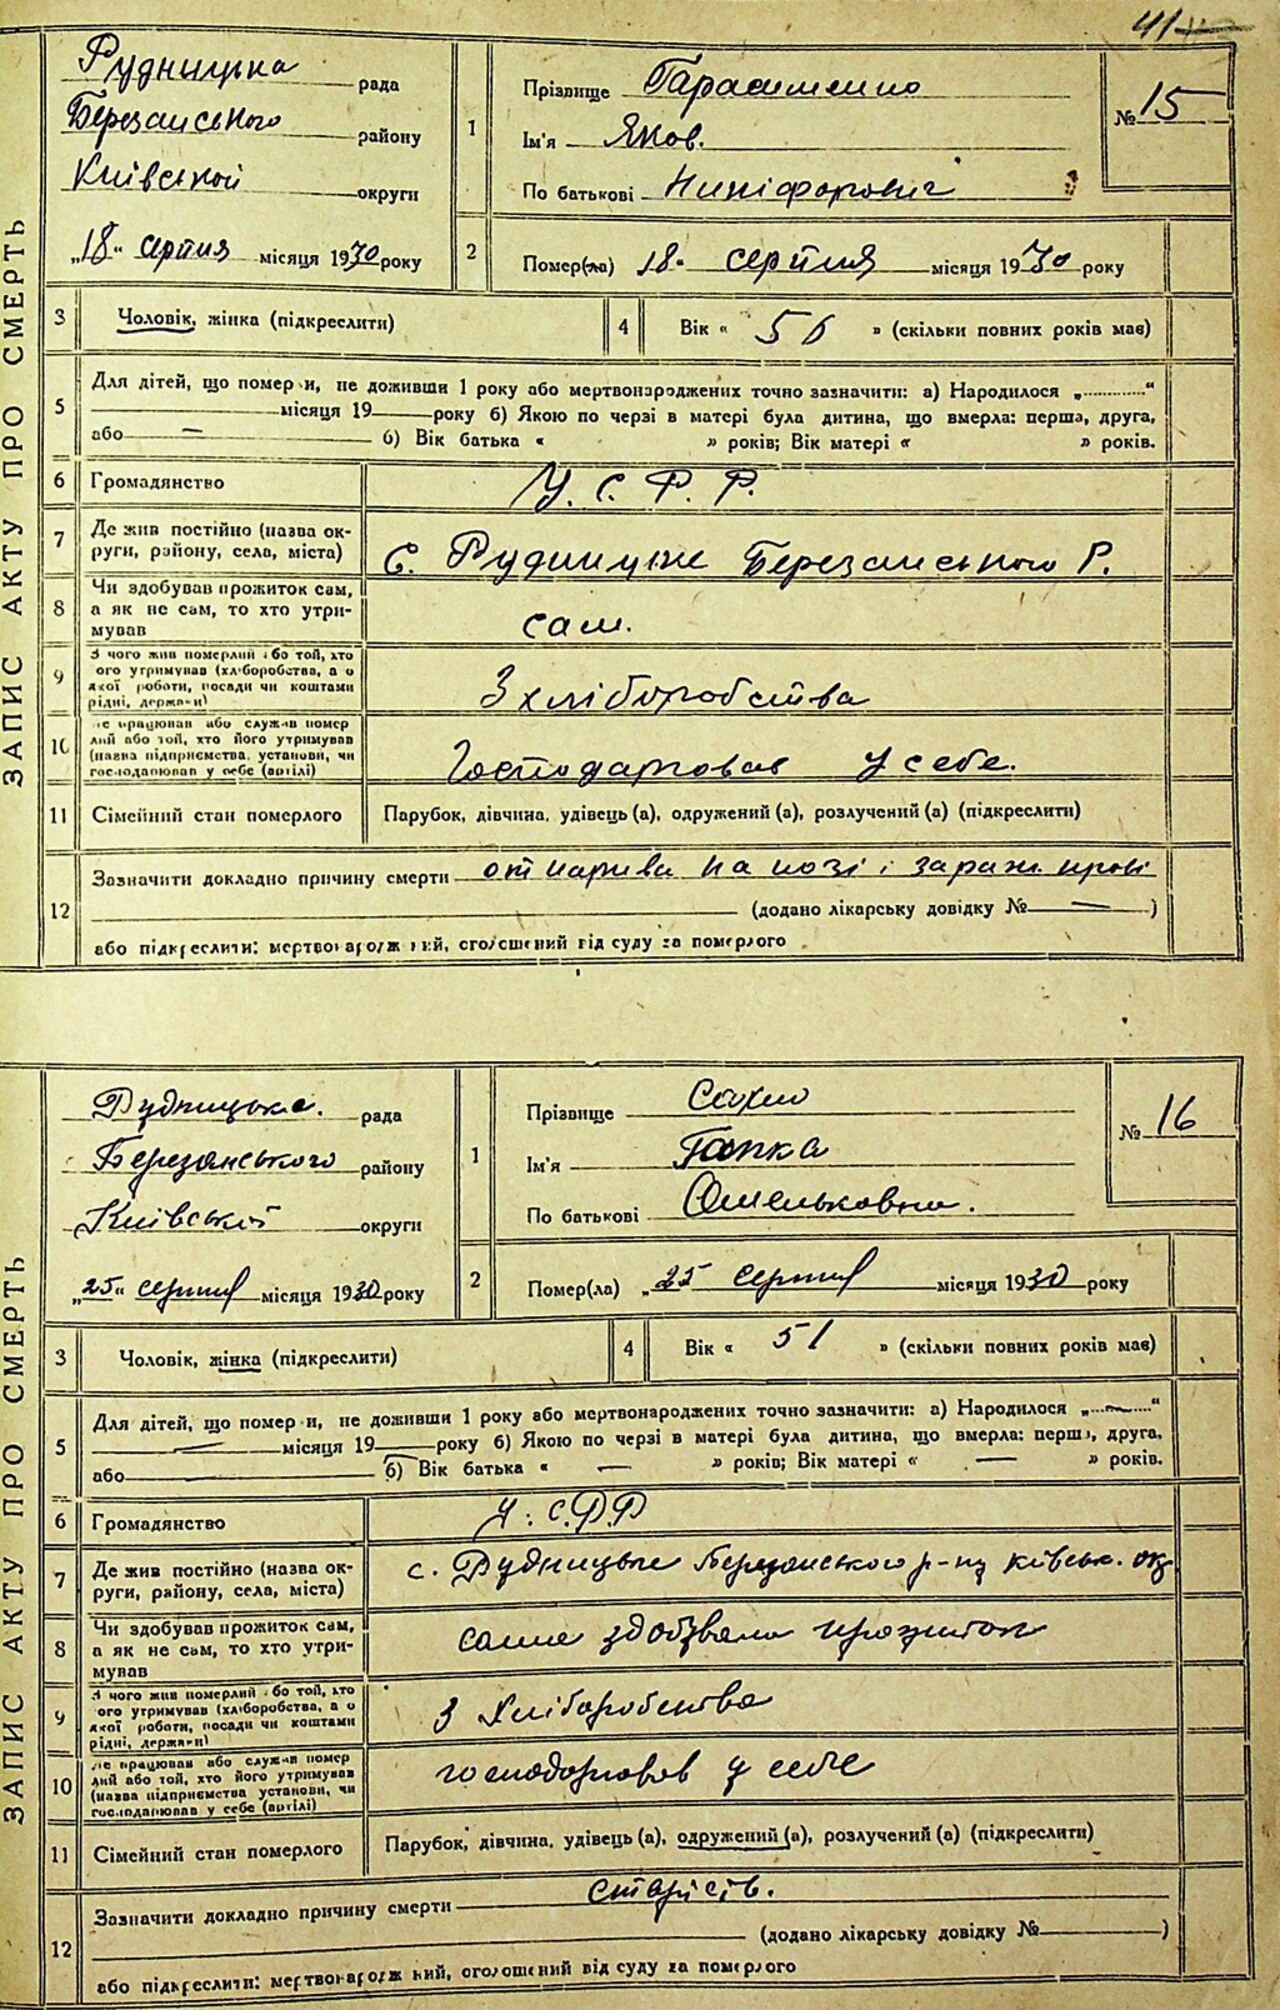 41
ЗАПИС АКТУ ПРО СМЕРТЬ
Рудницька рада
Березанського району
Київської округи
„18“ серпня місяця 1930 року
1
Прізвище Гарасименко
Ім'я Яков.
По батькові Никіфорович
№ 15
2
Помер(ла) 18 „ серпня місяця 1930 року
3
Чоловік, жінка (підкреслити)
4
Вік « 56 » (скільки повних років мав)
5
Для дітей, що померли, не доживши 1 року або мертвонароджених точно зазначити: а) Народилося „..........“
місяця 19 року б) Якою по черзі в матері була дитина, що вмерла: перша, друга,
або — б) Вік батька « » років; Вік матері « » років.
6
Громадянство
У. С. Р. Р.
7
Де жив постійно (назва ок-
руги, району, села, міста)
С. Рудницьке Березанського Р.
8
Чи здобував прожиток сам,
а як не сам, то хто утри-
мував
сам.
9
З чого жив померлий або той, хто
його утримував (хліборобства, а о
якої роботи, посади чи коштами
рідні, держави)
З хліборобства
10
Де працював або служив помер
лий або той, хто його утримував
(назва підприємства, установи, чи
господарював у себе (артілі)
Господарював у себе.
11
Сімейний стан померлого
Парубок, дівчина, удівець(а), одружений (а), розлучений (а) (підкреслити)
12
Зазначити докладно причину смерти от нарива на нозі і зараж. крові
(додано лікарську довідку № — )
або підкреслити: мертвонароджений, оголошений від суду за померлого
ЗАПИС АКТУ ПРО СМЕРТЬ
Рудницька. рада
Березанського району
Київської округи
„25“ серпня місяця 1930 року
1
Прізвище Сахно
Ім'я Гапка
По батькові Омельковна.
№ 16
2
Помер(ла) „25 серпня місяця 1930 року
3
Чоловік, жінка (підкреслити)
4
Вік « 51 » (скільки повних років мав)
5
Для дітей, що померли, не доживши 1 року або мертвонароджених точно зазначити: а) Народилося „....—....“
— місяця 19 року б) Якою по черзі в матері була дитина, що вмерла: перша, друга,
або б) Вік батька « — » років; Вік матері « — » років.
6
Громадянство
У. С.Р.Р
7
Де жив постійно (назва ок-
руги, району, села, міста)
с. Рудницьке Березанського р-ну київськ. ок
8
Чи здобував прожиток сам,
а як не сам, то хто утри-
мував
сама здобувала прожиток
9
З чого жив померлий або той, хто
його утримував (хліборобства, а о
якої роботи, посади чи коштами
рідні, держави)
З хліборобства
10
Де працював або служив помер
лий або той, хто його утримував
(назва підприємства установи, чи
господарював у себе (артілі)
господорював у себе
11
Сімейний стан померлого
Парубок, дівчина, удівець (а), одружений (а), розлучений (а) (підкреслити)
12
Зазначити докладно причину смерти старість.
(додано лікарську довідку № )
або підкреслити: мертвонароджений, оголошений від суду за померлого